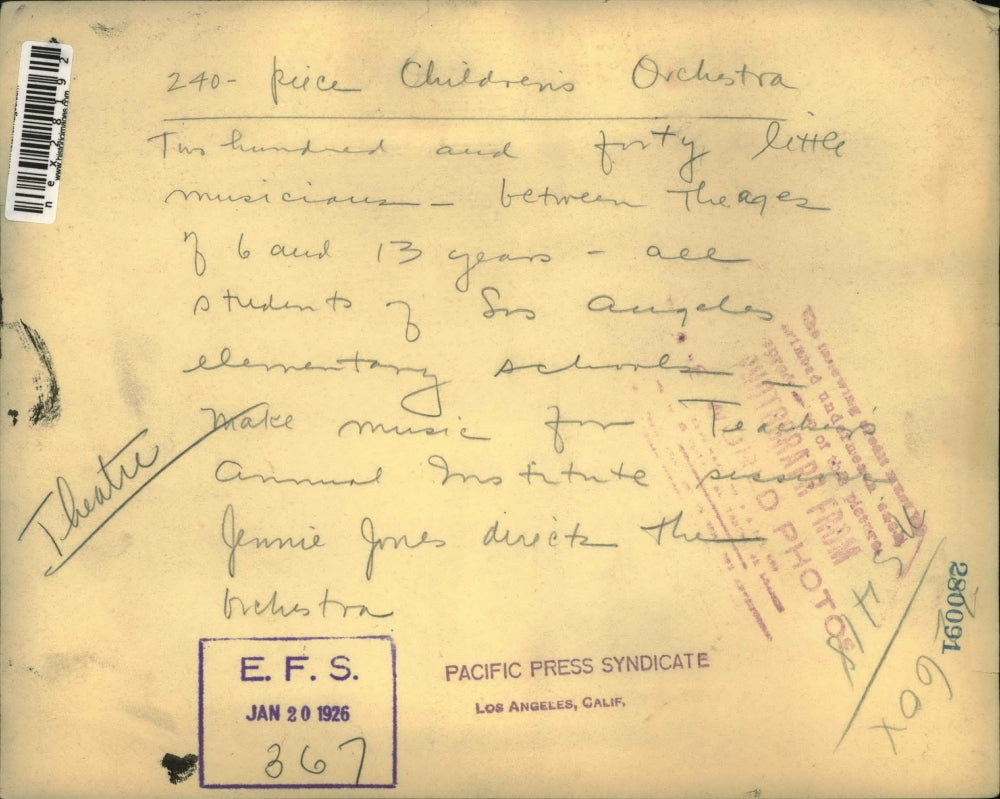 240- piece Children's Orchestra
Two hundred and forty little
musicians - between the ages
of 6 and 13 years - all
students of Los Angeles
elementary schools -
make music for Teacher's
Annual Institute sessions.
Jennie Jones directs the
Orchestra
Theatre
E. F. S.
JAN 20 1926
367
PACIFIC PRESS SYNDICATE
LOS ANGELES, CALIF.
The following credit
printed underneath each
of this picture
PHOTOGRAPH FROM
PHOTOS
280091
60x
nex28192
www.historicimages.com